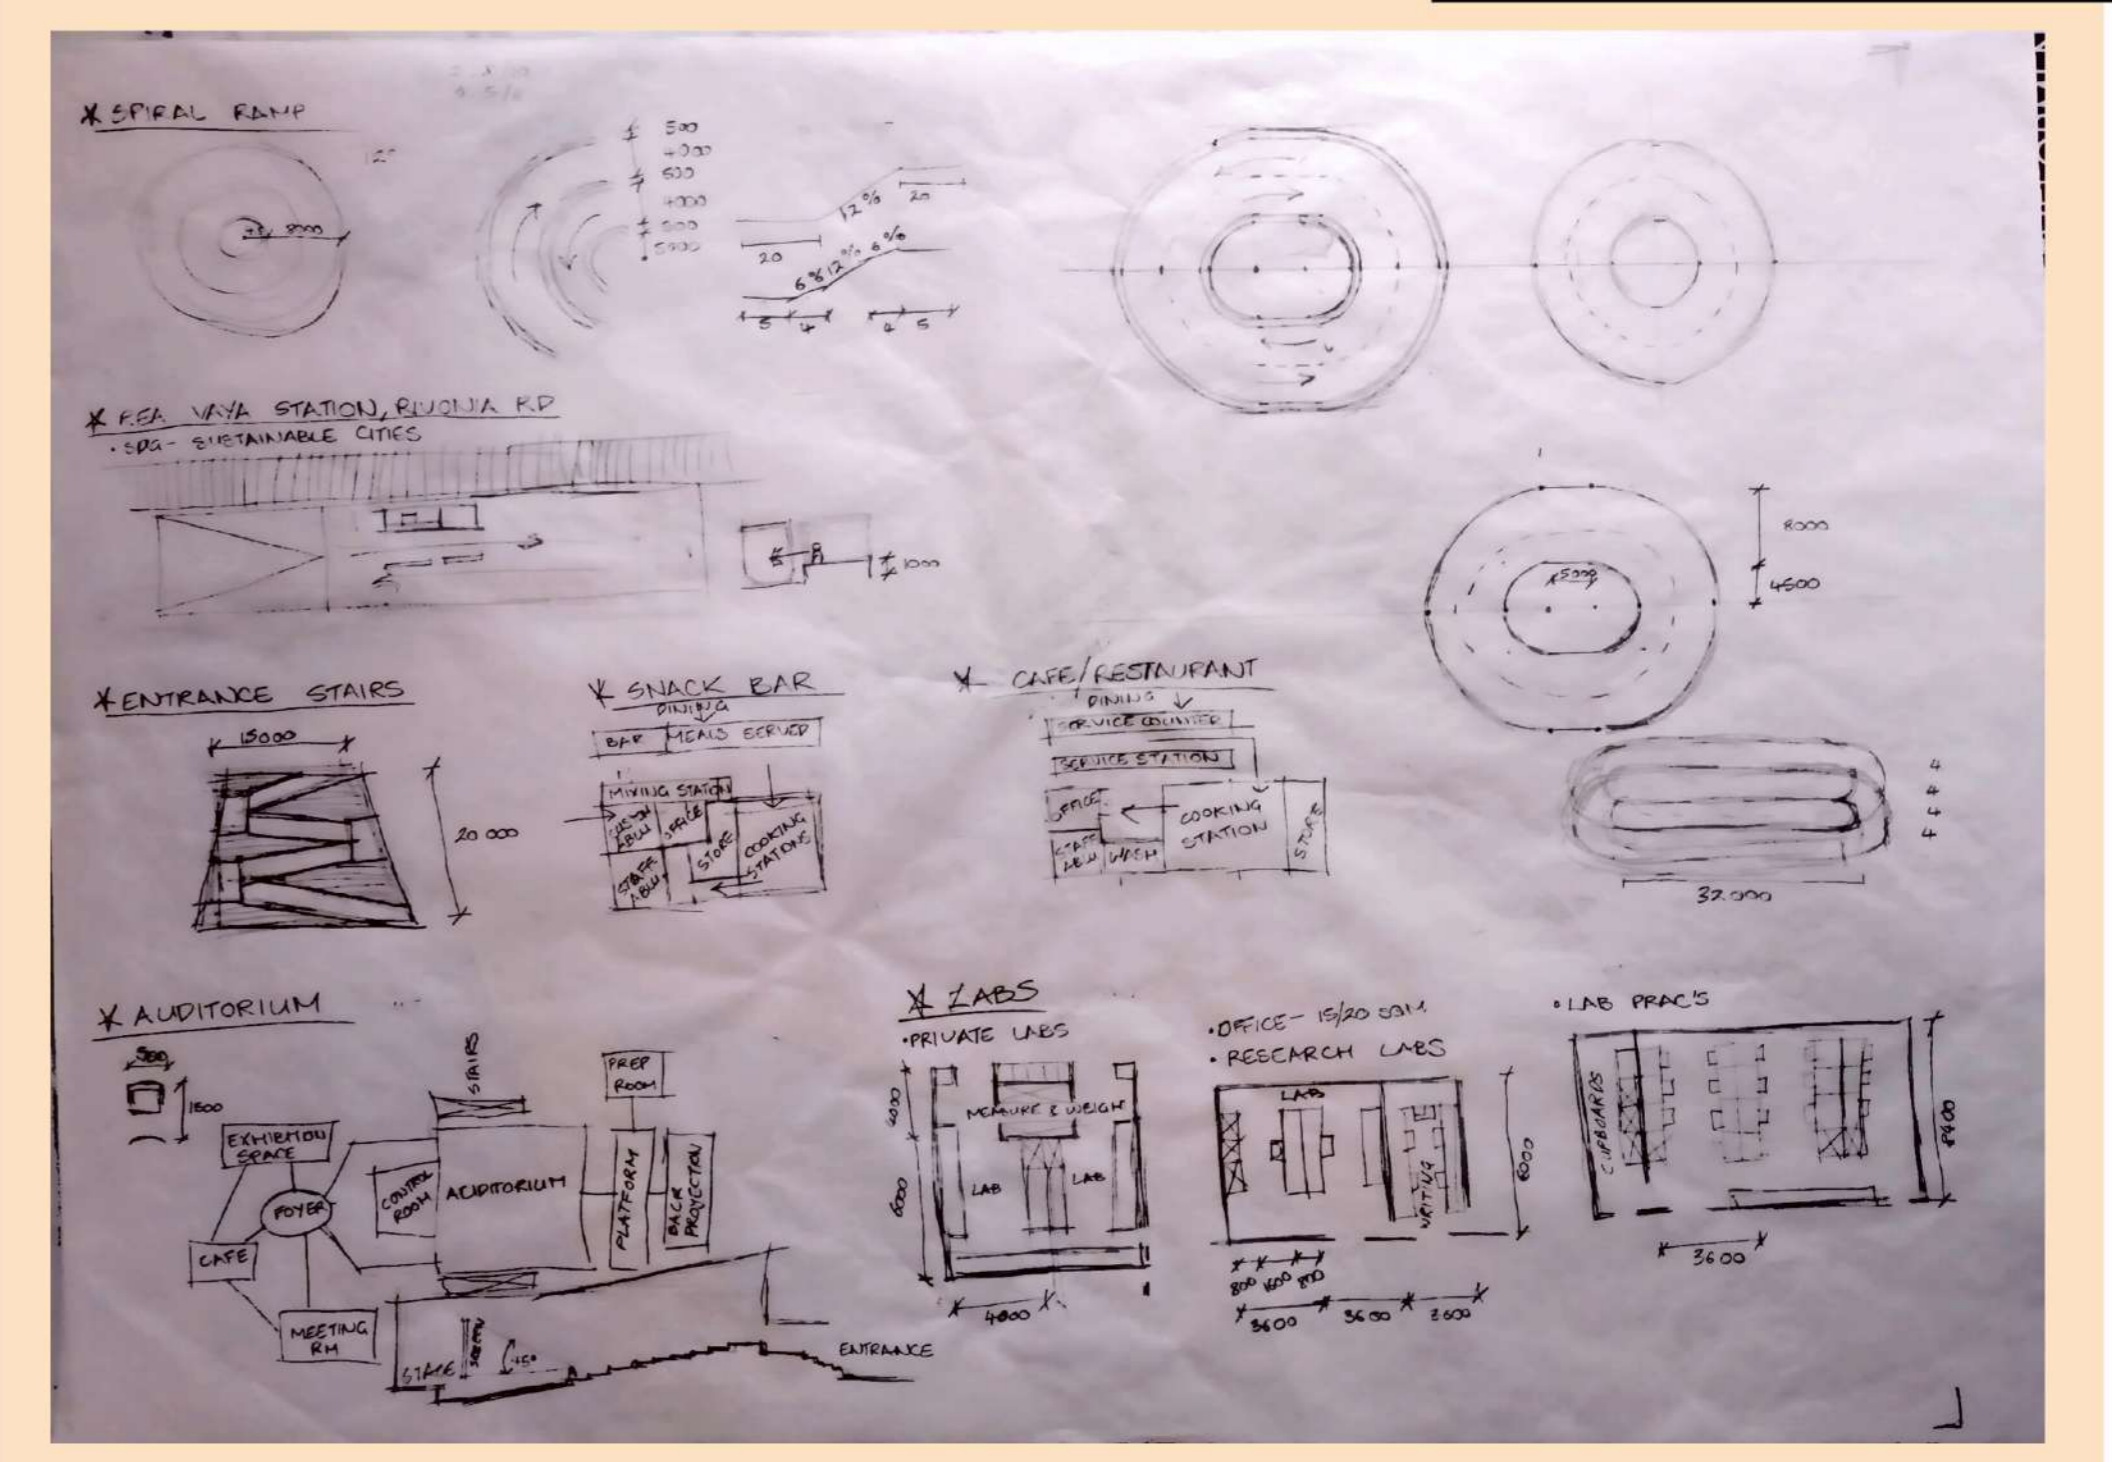 * SPIRAL RAMP
12°
8000
500
4000
500
4000
500
5000
20
12%
20
6% 12% 6%
5 4 4 5
* REA VAYA STATION, RIVONIA RD
• SDG - SUSTAINABLE CITIES
1000
8000
4500
5000
4 4 4 4
32 000
* ENTRANCE STAIRS
15000
20 000
* SNACK BAR
DINING
BAR
MEALS SERVED
MIXING STATION
ABLU
OFFICE
STORE
COOKING
STATIONS
STAFF
ABLU
* CAFE/RESTAURANT
DINING
SERVICE COUNTER
SERVICE STATION
OFFICE
COOKING
STATION
STORE
STAFF
ABLU
WASH
* AUDITORIUM
500
1500
STAIRS
PREP
ROOM
EXHIBITION
SPACE
FOYER
CAFE
MEETING
RM
CONTROL
ROOM
AUDITORIUM
PLATFORM
BACK
PROJECTION
STAGE
SCREEN
45°
ENTRANCE
* LABS
• PRIVATE LABS
4000
6000
MEASURE & WEIGH
LAB
LAB
4000
• OFFICE - 15/20 SQM
• RESEARCH LABS
LAB
WRITING
6000
800 1600 800
3600 3600 3600
• LAB PRAC'S
CUPBOARDS
8400
3600